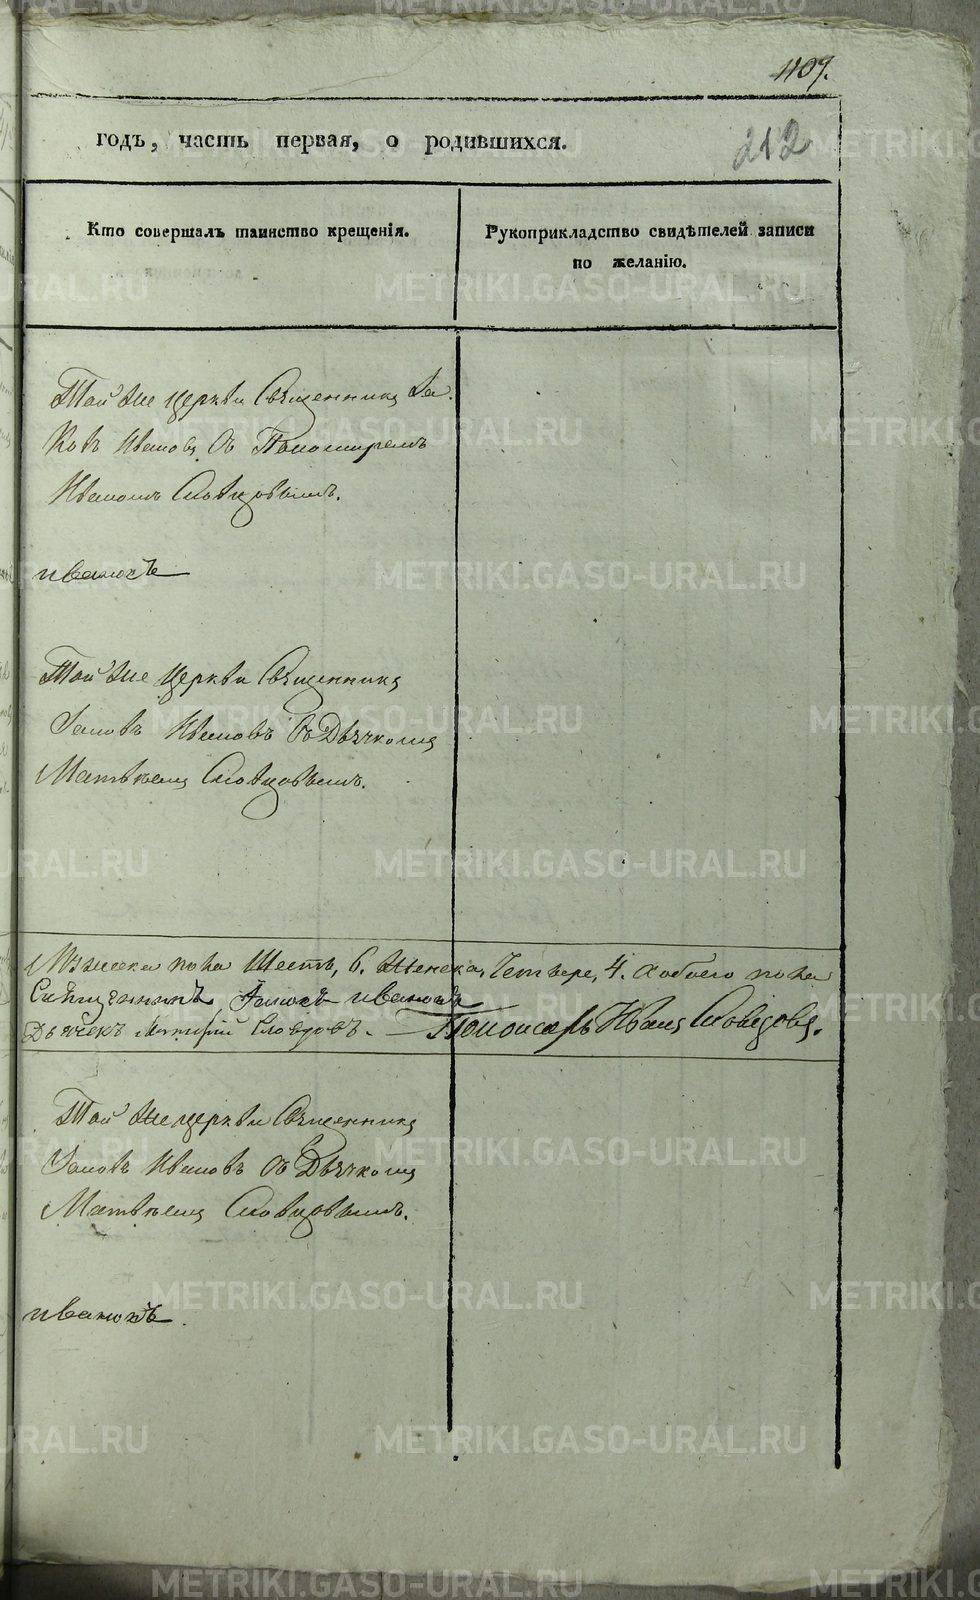 1109.
годъ, часть первая, о родившихся.
212
Кто совершалъ таинство крещенія.
Рукоприкладство свидѣтелей записи
по желанію.
Той же церкви Священникъ Іа-
ковъ Ивановъ съ Пономаремъ
Иваномъ Словцовымъ.
ивановъ
Той же церкви Священникъ
Іаковъ Ивановъ съ Дьячкомъ
Матвѣемъ Словцовымъ.
Мужеска пола Шесть, 6. Женска, Четыре, 4. а обоего пола
Священникъ Іаковъ ивановъ
Дьячекъ Матфій Словцовъ. Пономарь Иванъ Словцовъ.
Той же церкви Священникъ
Іаковъ Ивановъ съ Дьячкомъ
Матвѣемъ Словцовымъ.
ивановъ.
METRIKI.GASO-URAL.RU